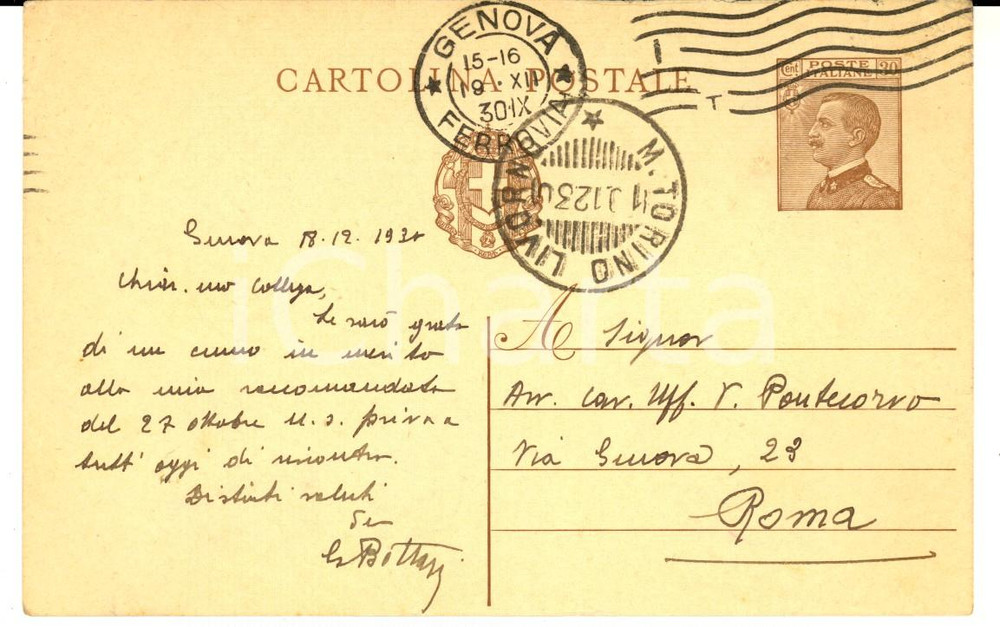 CARTOLINA POSTALE
GENOVA
15-16
19 · XII
30 IX
FERROVIA
M. TORINO LIVORNO
11 1230
cent POSTE ITALIANE 30
Genova 18.12.1930
Chiar.mo Collega,
Le sarò grato
di un cenno in merito
alla mia raccomandata
del 27 ottobre u.s. priva a
tutt'oggi di riscontro.
Distinti saluti
G Bottazzi
A Signor
Avv. Cav. Uff. V. Pontecorvo
Via Genova, 23
Roma
iCharta